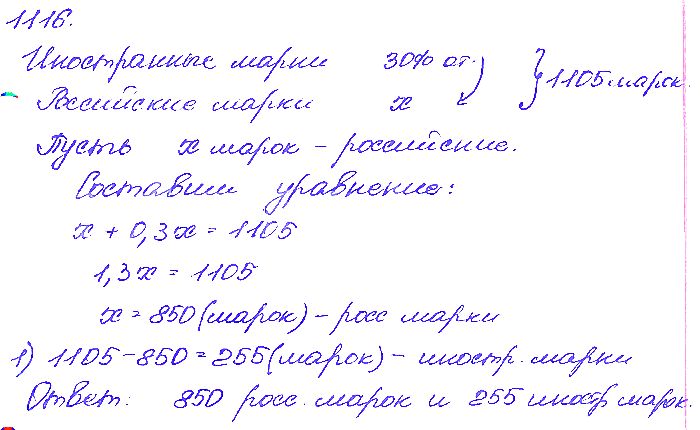 1116.
Иностранные марки 30% от } 1105 марок.
Российские марки x
Пусть x марок - российские.
Составим уравнение:
x + 0,3x = 1105
1,3x = 1105
x = 850 (марок) - росс марки
1) 1105 - 850 = 255 (марок) - иностр. марки
Ответ: 850 росс. марок и 255 иностр марок.